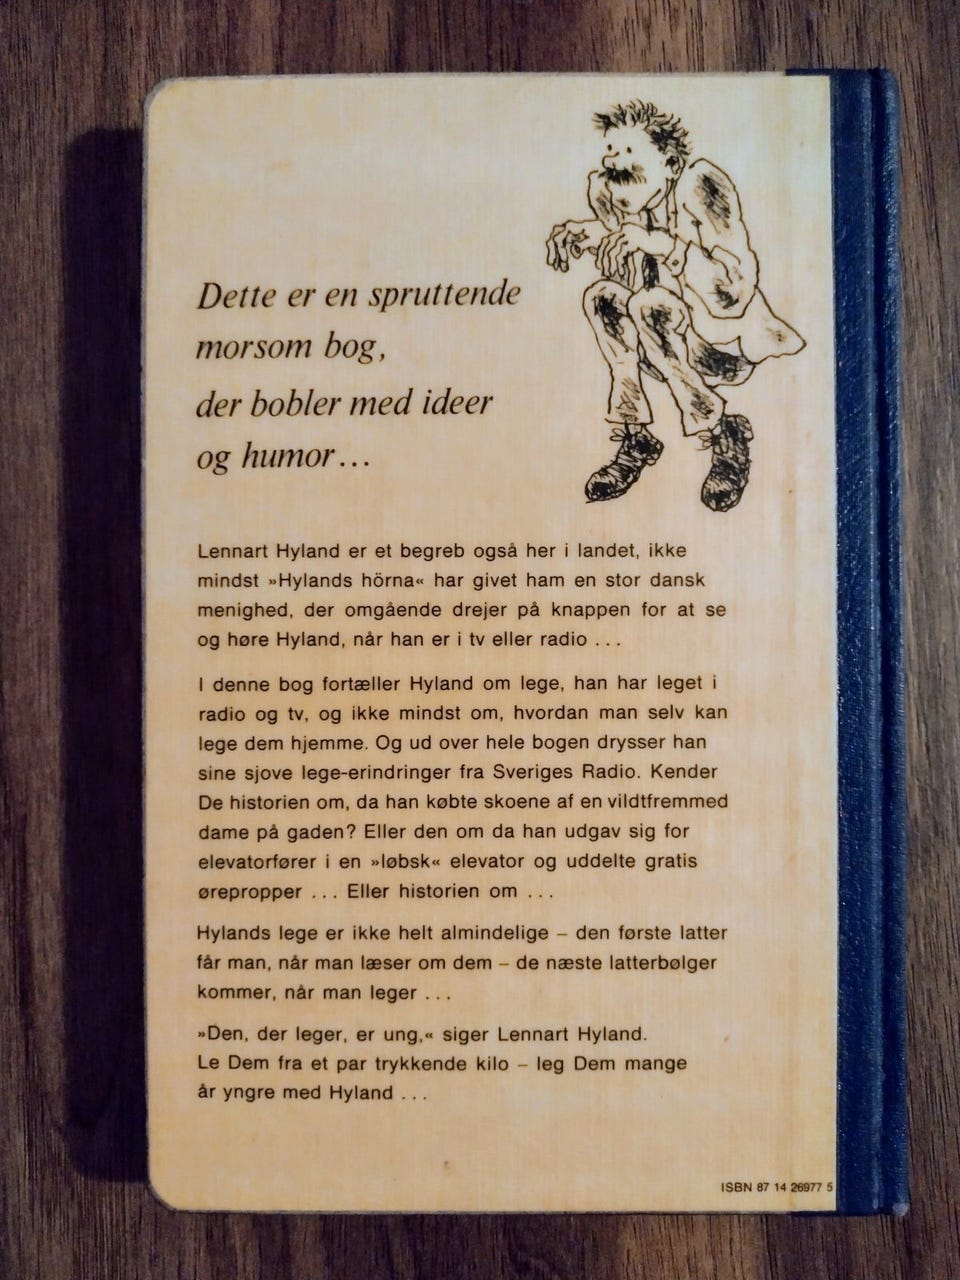 Dette er en spruttende
morsom bog,
der bobler med ideer
og humor...
Lennart Hyland er et begreb også her i landet, ikke
mindst »Hylands hörna« har givet ham en stor dansk
menighed, der omgående drejer på knappen for at se
og høre Hyland, når han er i tv eller radio ...
I denne bog fortæller Hyland om lege, han har leget i
radio og tv, og ikke mindst om, hvordan man selv kan
lege dem hjemme. Og ud over hele bogen drysser han
sine sjove lege-erindringer fra Sveriges Radio. Kender
De historien om, da han købte skoene af en vildtfremmed
dame på gaden? Eller den om da han udgav sig for
elevatorfører i en »løbsk« elevator og uddelte gratis
ørepropper ... Eller historien om ...
Hylands lege er ikke helt almindelige – den første latter
får man, når man læser om dem – de næste latterbølger
kommer, når man leger ...
»Den, der leger, er ung,« siger Lennart Hyland.
Le Dem fra et par trykkende kilo – leg Dem mange
år yngre med Hyland ...
ISBN 87 14 26977 5